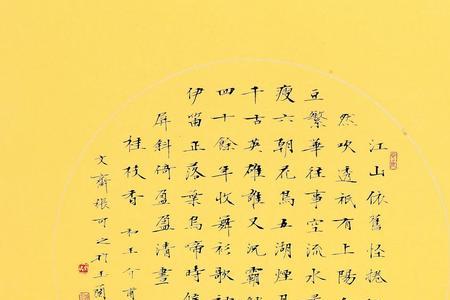 江山依舊怪捲
然吹透祇有上陽
豆繁華往事空流水
瘦六朝花鳥五湖煙
千古英雄誰又況霸
四十餘年收舞衫歌
伊笛正落葉烏啼時候
屏斜倚盈盈清晝
桂枝香 和王介甫
文齋張可之於王